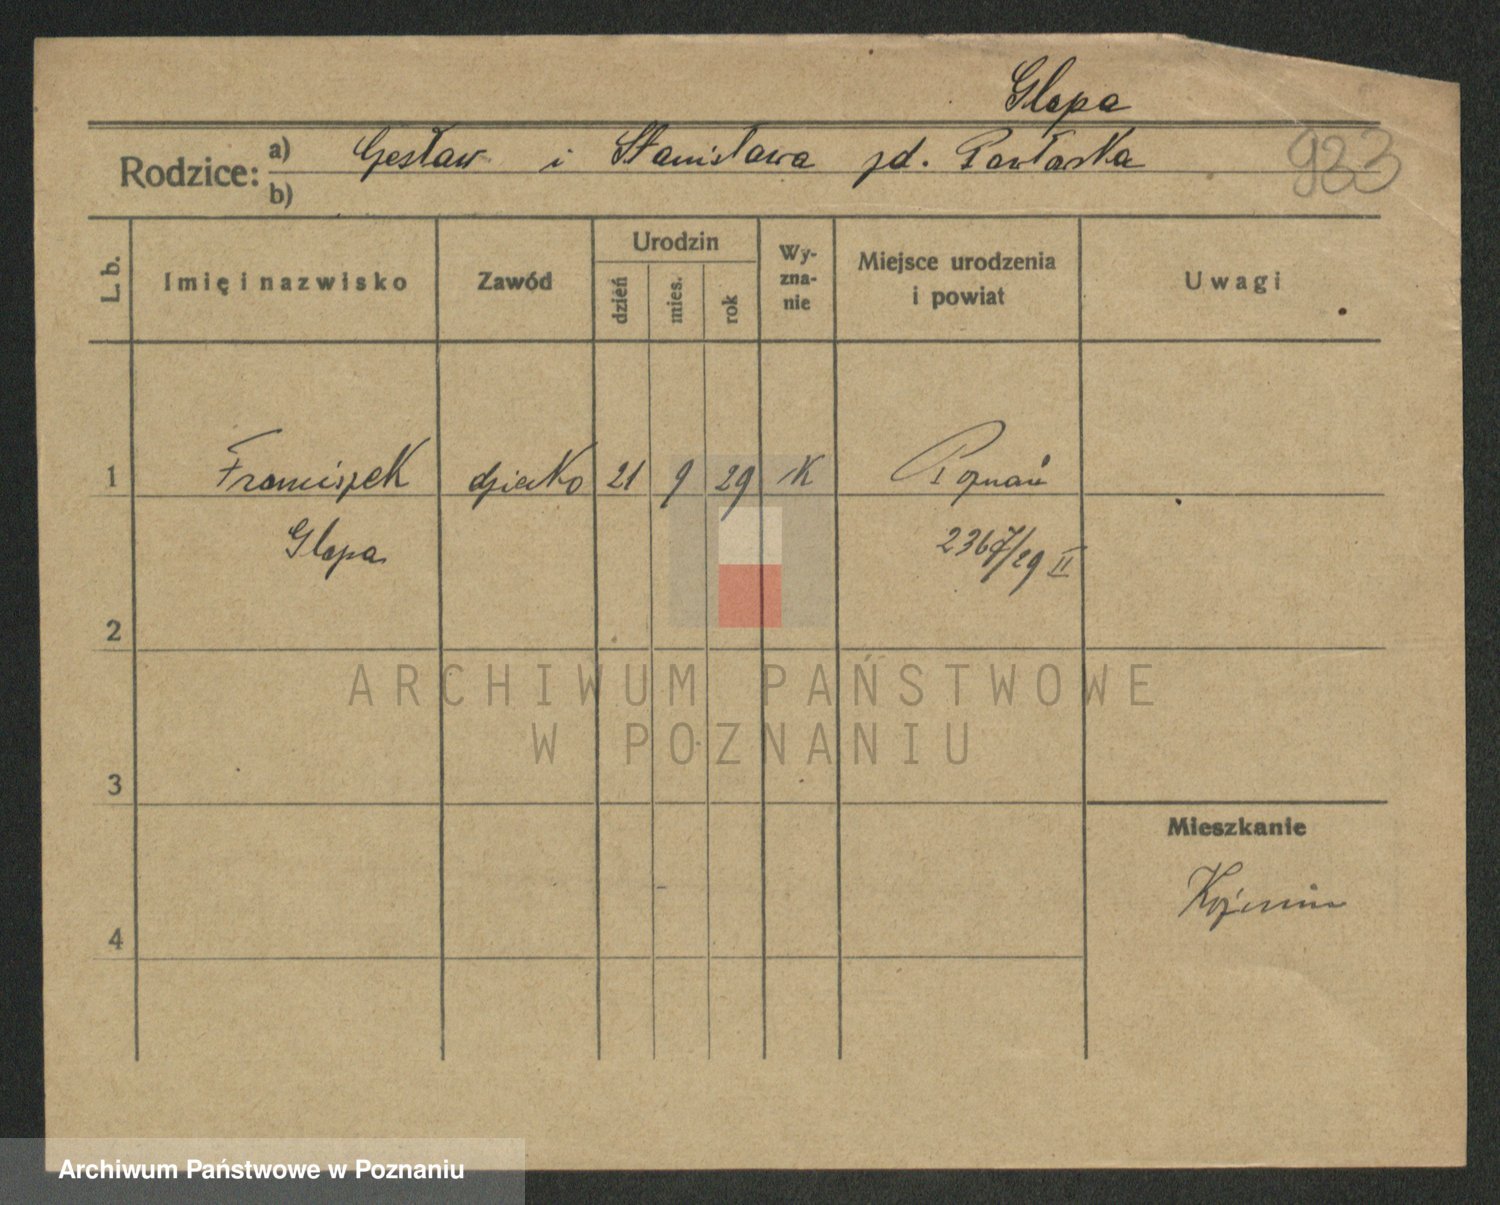 Glapa
Rodzice: a) Czesław i Stanisława zd. Pawlaska
b)
923
L. b.
Imię i nazwisko
Zawód
Urodzin
dzień
mies.
rok
Wy-
zna-
nie
Miejsce urodzenia
i powiat
Uwagi
1 Franciszek dziecko 21 9 29 K Poznań
Glapa 2367/29 II
2
ARCHIWUM PAŃSTWOWE
W POZNANIU
3
Mieszkanie
4
Archiwum Państwowe w Poznaniu